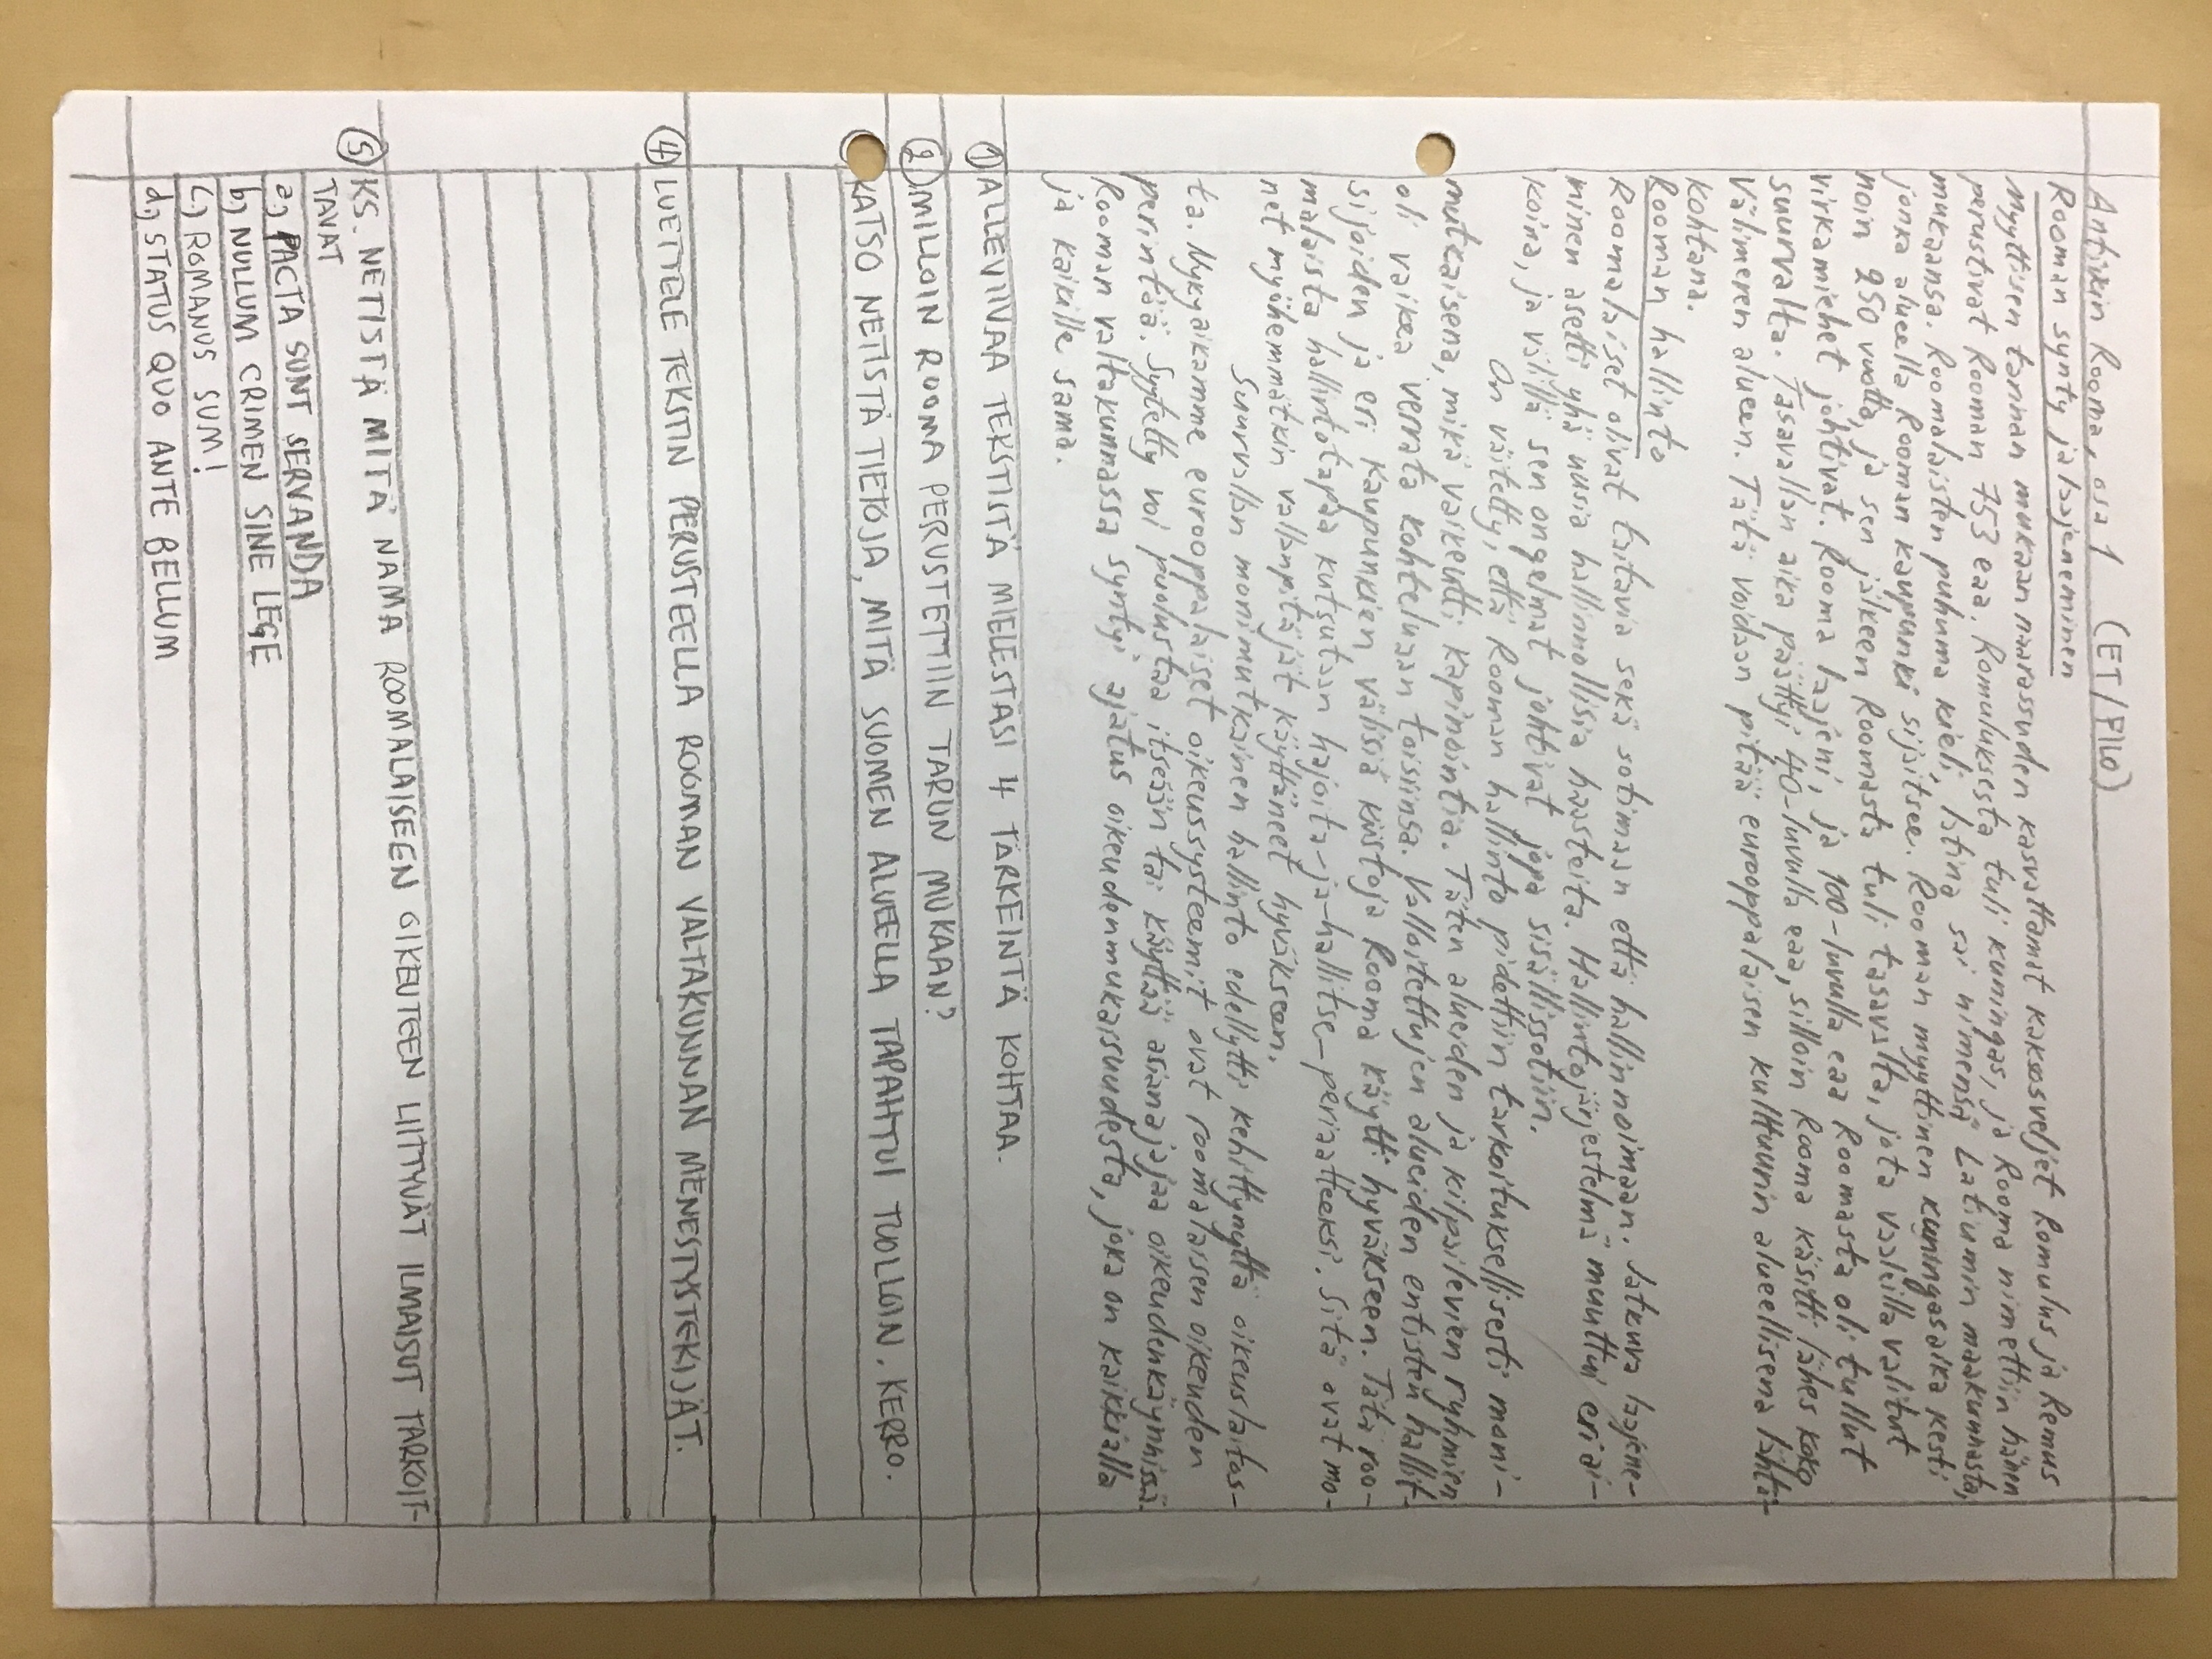 Antiikin Rooma, osa 1 (ET/FILO)
Rooman synty ja laajeneminen
Myyttisen tarinan mukaan naarassuden kasvattamat kaksosveljet Romulus ja Remus
perustivat Rooman 753 eaa. Romuluksesta tuli kuningas, ja Rooma nimettiin hänen
mukaansa. Roomalaisten puhuma kieli, latina sai nimensä Latiumin maakunnasta,
jonka alueella Rooman kaupunki sijaitsee. Rooman myyttinen kuningasaika kesti
noin 250 vuotta, ja sen jälkeen Roomasta tuli tasavalta, jota vaaleilla valitut
virkamiehet johtivat. Rooma laajeni, ja 100-luvulla eaa Roomasta oli tullut
suurvalta. Tasavallan aika päättyi 40-luvulla eaa, silloin Rooma käsitti lähes koko
Välimeren alueen. Tätä voidaan pitää eurooppalaisen kulttuurin alueellisena lähtö-
kohtana.
Rooman hallinto
Roomalaiset olivat taitavia sekä sotimaan että hallinnoimaan. Jatkuva laajene-
minen asetti yhä uusia hallinnollisia haasteita. Hallintojärjestelmä muuttui eri ai-
koina, ja välillä sen ongelmat johtivat jopa sisällissotiin.
On väitetty, että Rooman hallinto pidettiin tarkoituksellisesti moni-
mutkaisena, mikä vaikeutti kapinointia. Täten alueiden ja kilpailevien ryhmien
oli vaikea verrata kohteluaan toisiinsa. Valloitettujen alueiden entisten hallit-
sijoiden ja eri kaupunkien välisiä kiistoja Rooma käytti hyväkseen. Tätä roo-
malaista hallintotapaa kutsutaan hajoita-ja-hallitse-periaatteeksi. Sitä ovat mo-
net myöhemmätkin vallanpitäjät käyttäneet hyväkseen.
Suurvallan monimutkainen hallinto edellytti kehittynyttä oikeuslaitos-
ta. Nykyaikamme eurooppalaiset oikeussysteemit ovat roomalaisen oikeuden
perintöä. Syytetty voi puolustaa itseään tai käyttää asianajajaa oikeudenkäynnissä.
Rooman valtakunnassa syntyi ajatus oikeudenmukaisuudesta, joka on kaikkialla
ja kaikille sama.
① ALLEVIIVAA TEKSTISTÄ MIELESTÄSI 4 TÄRKEINTÄ KOHTAA.
② MILLOIN ROOMA PERUSTETTIIN TARUN MUKAAN?
KATSO NETISTÄ TIETOJA, MITÄ SUOMEN ALUEELLA TAPAHTUI TUOLLOIN. KERRO.
④ LUETTELE TEKSTIN PERUSTEELLA ROOMAN VALTAKUNNAN MENESTYSTEKIJÄT.
⑤ KS. NETISTÄ MITÄ NÄMÄ ROOMALAISEEN OIKEUTEEN LIITTYVÄT ILMAISUT TARKOIT-
TAVAT
a) PACTA SUNT SERVANDA
b) NULLUM CRIMEN SINE LEGE
c) ROMANUS SUM!
d) STATUS QUO ANTE BELLUM